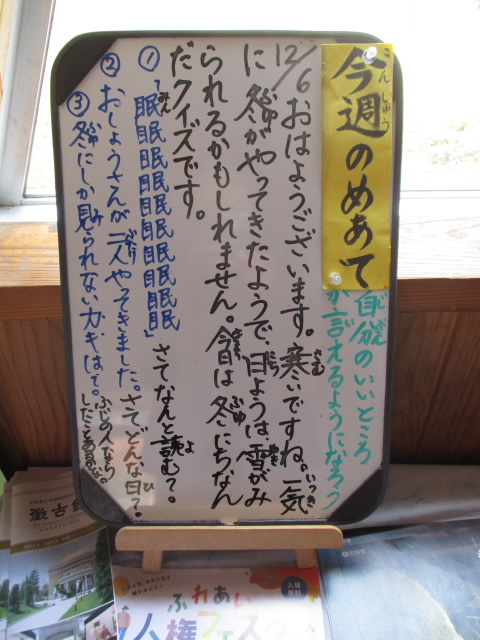 今週のめあて
自分のいいところ
が言えるようになろう
12/6 おはようございます。寒いですね。一気
に冬がやってきたようで、日ようは雪がみ
られるかもしれません。今日は冬にちなん
だクイズです。
①「眠眠眠眠眠眠眠眠眠眠」さてなんと読む?。
②おしょうさんが二人やってきました。さてどんな日?。
③冬にしか見られないカギは?。
ふじの人なら
したことあるかな。
ふれあい
人権フェスタ